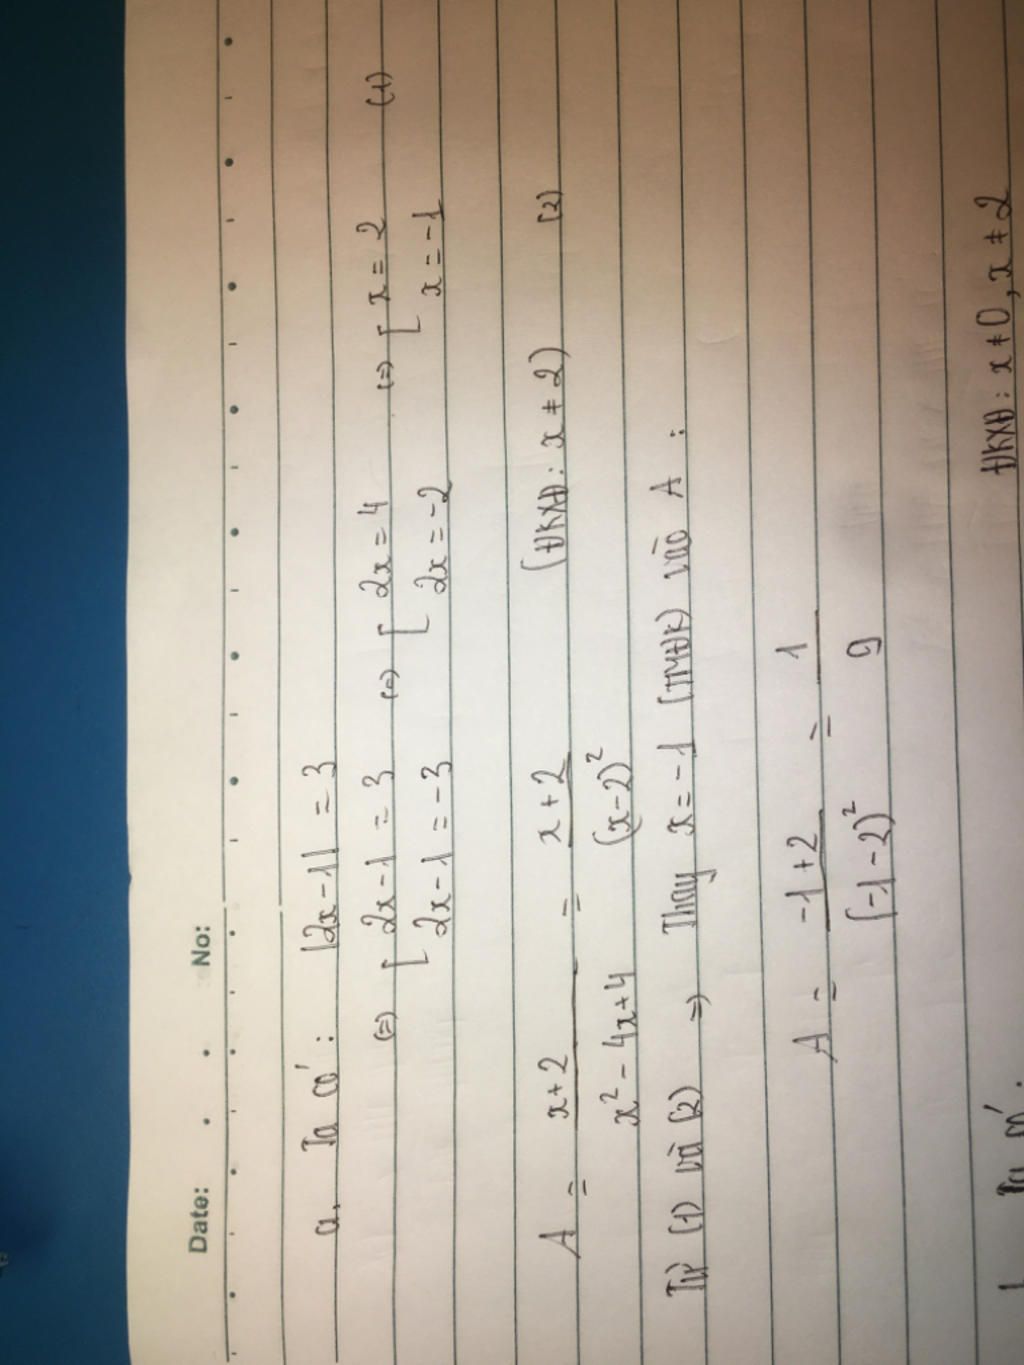 Date: No:
a. Ta có: |2x-1| = 3
(=) [ 2x-1 = 3 (=) [ 2x = 4 (=) [ x = 2 (1)
[ 2x-1 = -3 [ 2x = -2 [ x = -1
A = x+2 / x² - 4x+4 = x+2 / (x-2)² (ĐKXĐ: x ≠ 2) (2)
Từ (1) và (2) => Thay x = -1 (TMĐK) vào A :
A = -1+2 / (-1-2)² = 1 / 9
Ta có: ĐKXĐ: x ≠ 0, x ≠ 2